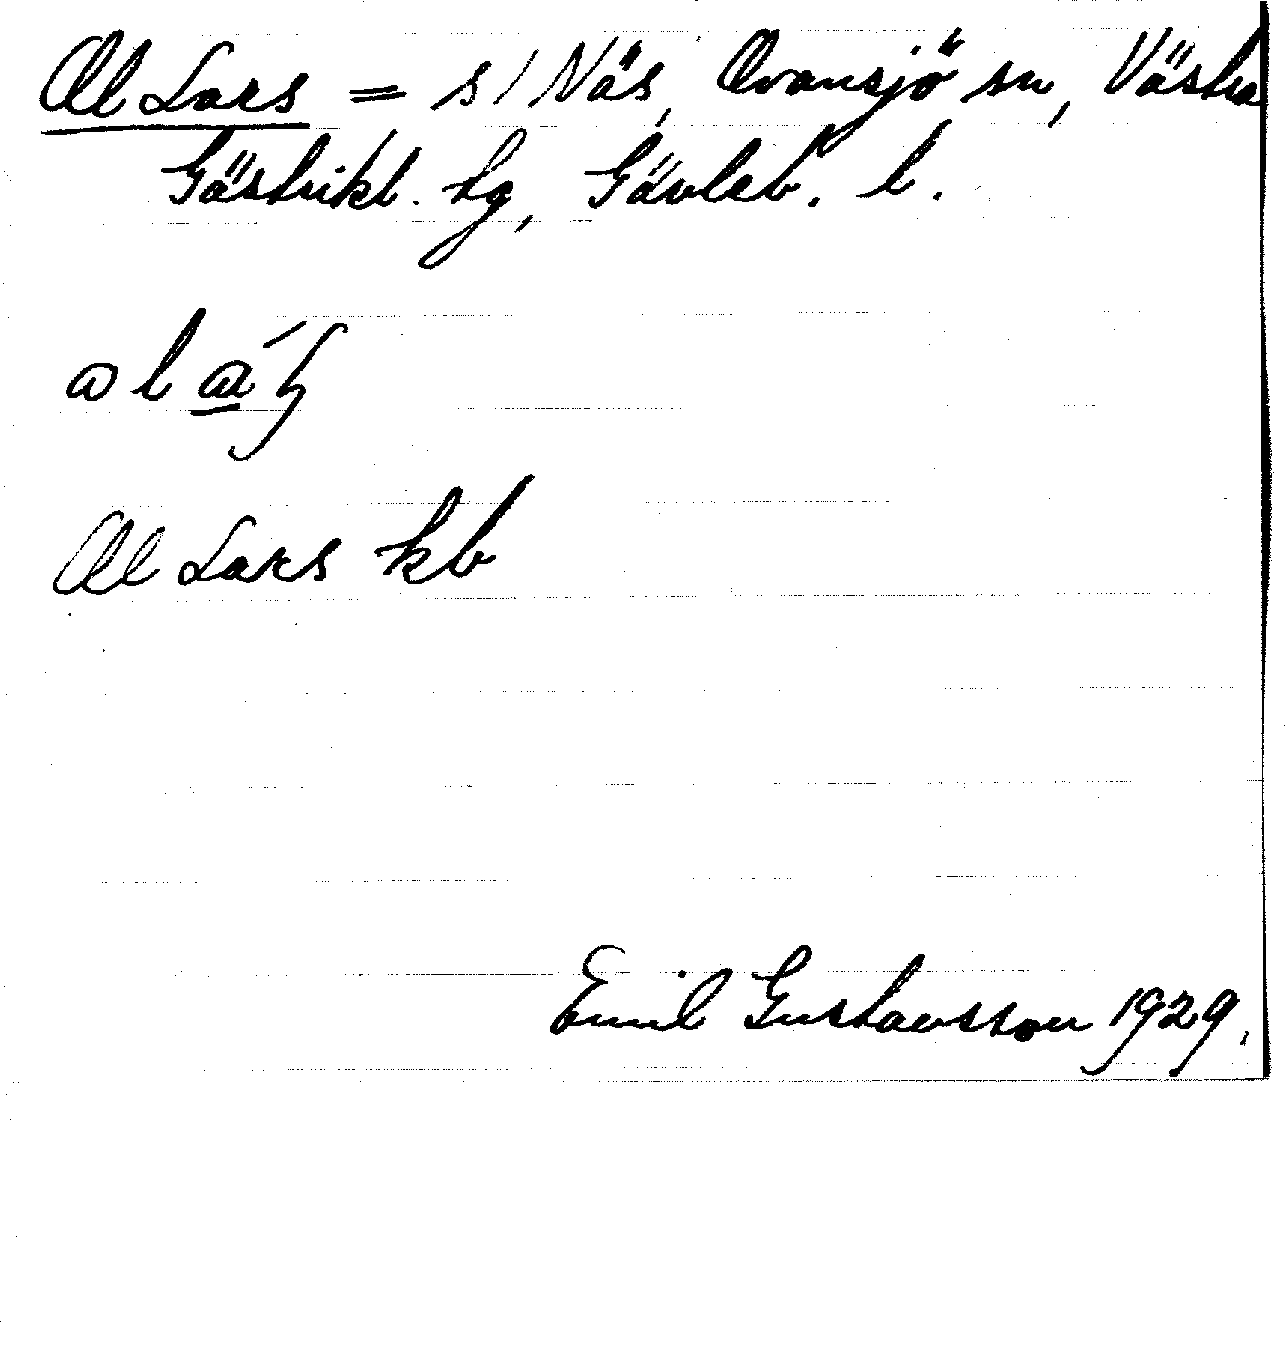 Al Lars = s/ Näs, Ovansjö sn, Västra
Gästrikl. tg, Gävleb. l.
Al Lars kb
Emil Gustavsson 1929.